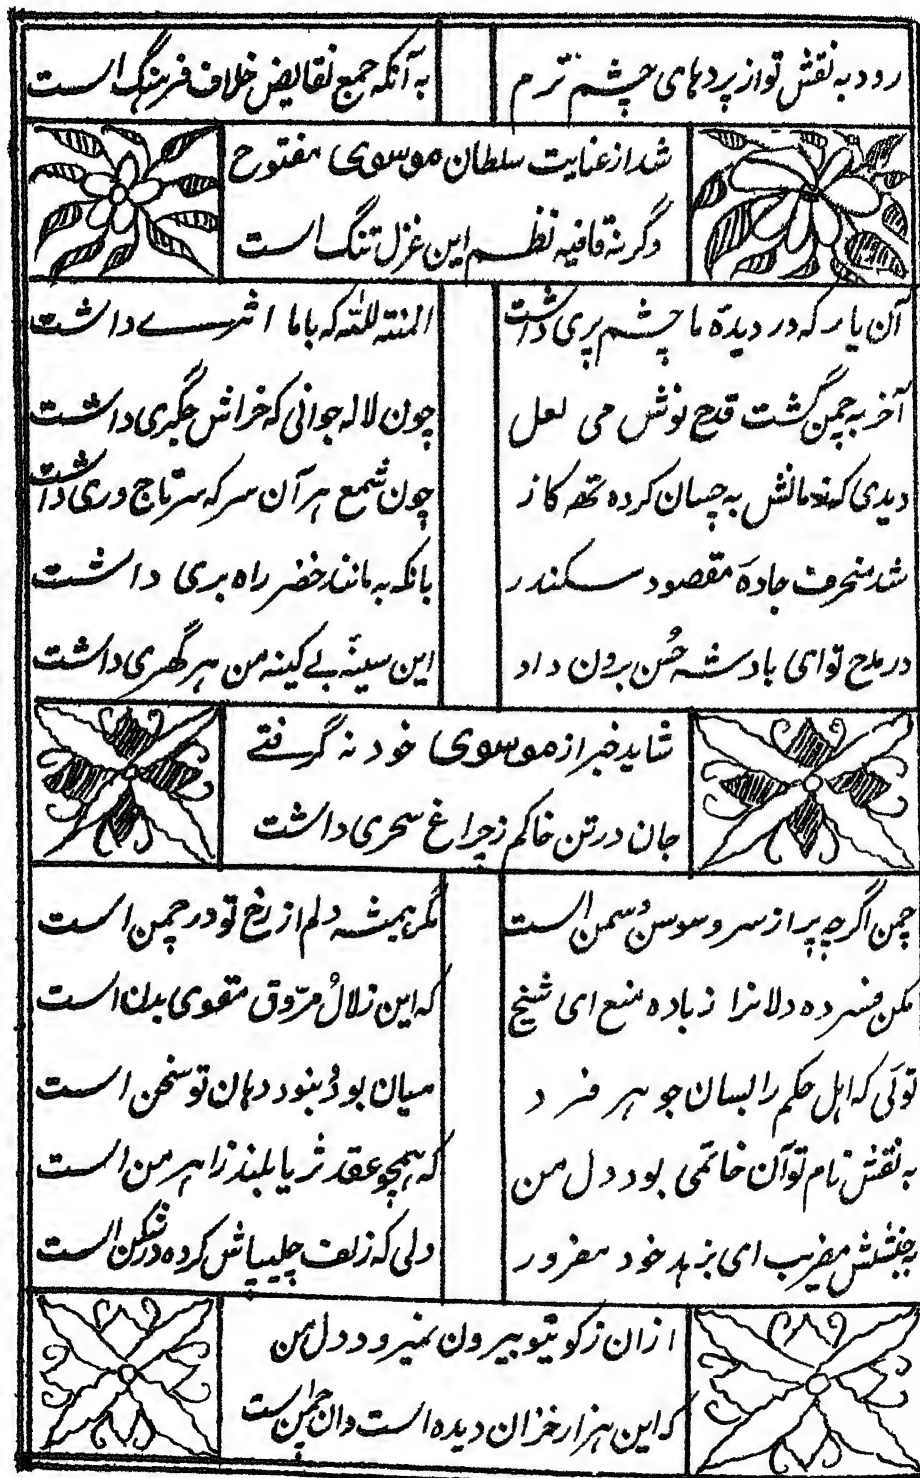 رود به نقش تو از پردهای چشم ترم به آنکه جمع نقایض خلاف فرهنگ است
شد از عنایت سلطان موسوی مفتوح
وگرنه قافیه نظم این غزل تنگ است
آن یار که در دیدهٔ ما چشم پری داشت المنته لله که باما اثرے داشت
آخر به چمن گشت قدح نوش می لعل چون لاله جوانی که خراش جگری داشت
دیدی که زمانش به چسان کرده ته گاز چون شمع هر آن سر که سر تاج وری داشت
شد منحرف جادهٔ مقصود سکندر بانکه به مانند خضر راه بری داشت
در مدح تو ای بادشه حُسن برون داد این سینهٔ بے کینه من هر گهری داشت
شاید خبر از موسوی خود نه گرفتے
جان در تن خاکم ز چراغ سحری داشت
چمن اگرچه پر از سرو سوسن و سمن است مگر همیشه دلم از رخ تو در چمن است
مکن فسرده دلانرا ز باده منع ای شیخ که این زلال مروّق مقوی بدن است
توئی که اهل حکم را بسان جوهر فرد میان بودُ نبود دهان تو سخن است
به نقش نام تو آن خاتمی بود دل من که همچو عقد ثریا بلند ز اهرمن است
به جنبشش مفریب ای بزهد خود مغرور دلی که زلف چلیپاش کرده در شکن است
ازان ز کویتو بیرون نمیرود دل من
که این هزار خزان دیده است وان چمن است